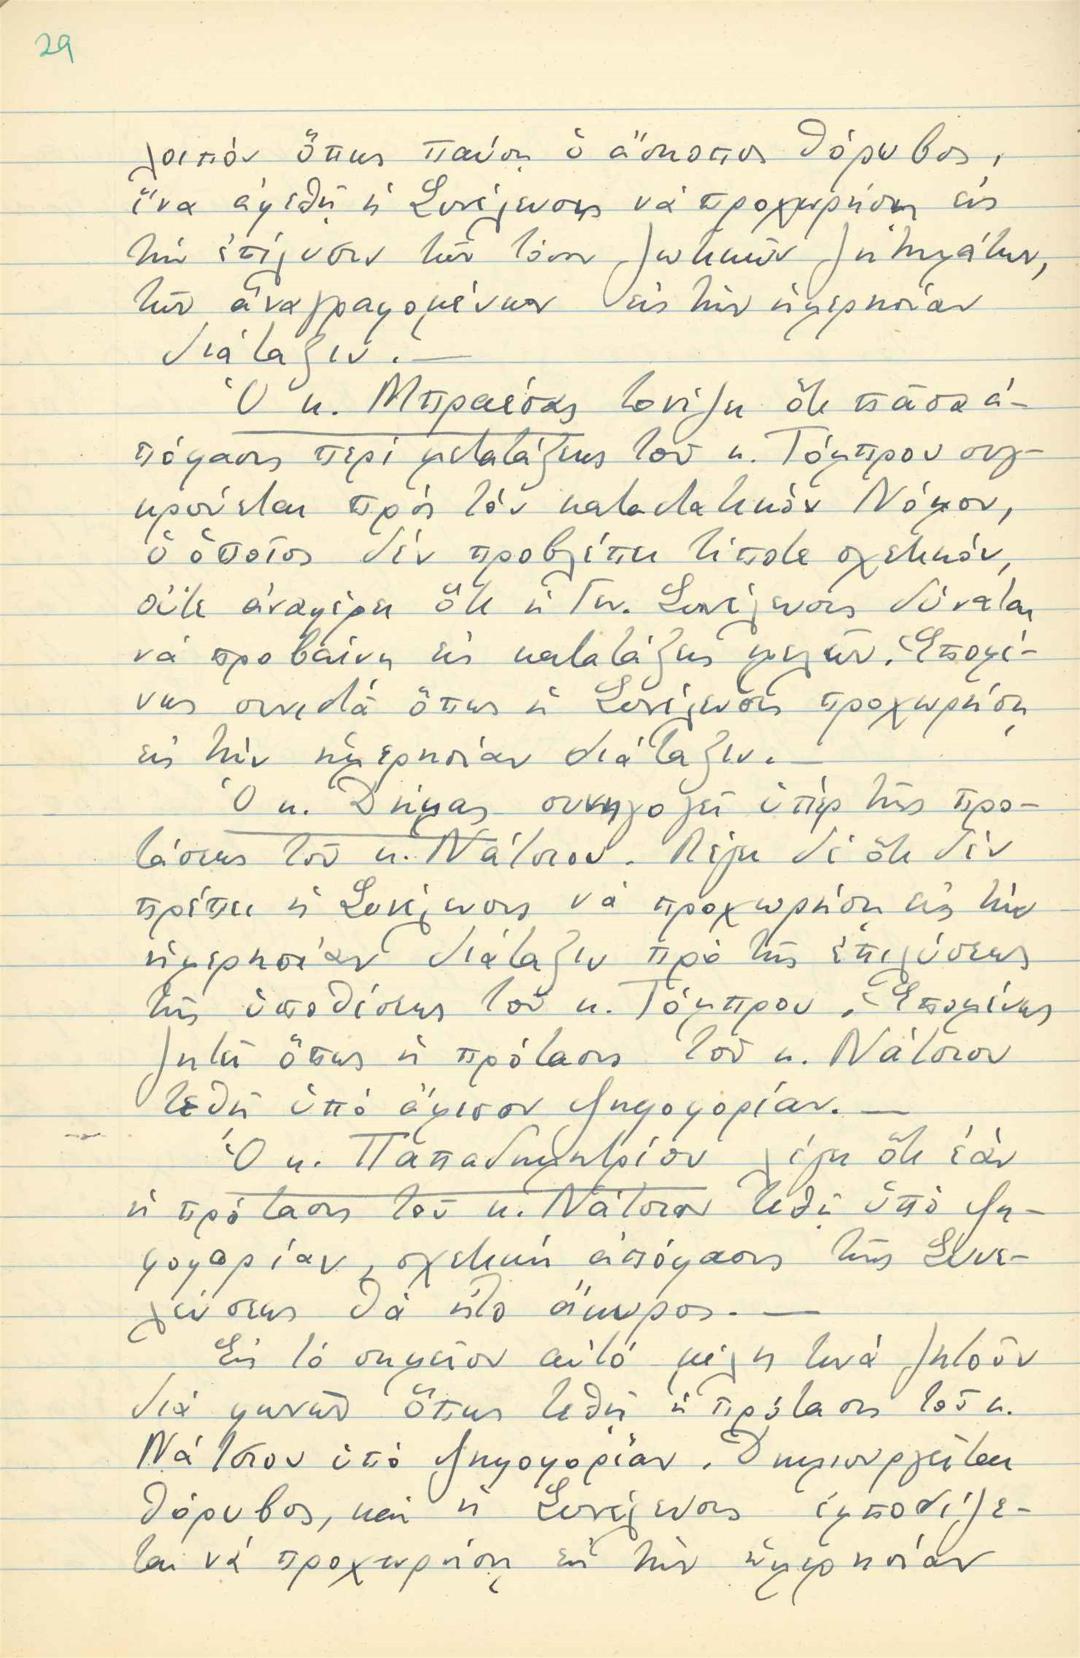 29
λοιπόν ὅπως παύσῃ ὁ ἄσκοπος θόρυβος,
ἵνα ἀφεθῇ ἡ Συνέλευσις νά προχωρήσῃ εἰς
τήν ἐπίλυσιν τῶν τόσον ζωτικῶν ζητημάτων,
τῶν ἀναγραφομένων εἰς τήν ἡμερησίαν
διάταξιν. —
Ὁ κ. Μπραέσας τονίζει ὅτι πᾶσα ἀ-
πόφασις περί μετατάξεως τοῦ κ. Τόμπρου συγ-
κρούεται πρός τόν καταστατικόν Νόμον,
ὁ ὁποῖος δέν προβλέπει τίποτε σχετικόν,
οὔτε ἀναφέρει ὅτι ἡ Γεν. Συνέλευσις δύναται
νά προβαίνῃ εἰς κατατάξεις μελῶν. Ἑπομέ-
νως συνιστᾶ ὅπως ἡ Συνέλευσις προχωρήσῃ
εἰς τήν ἡμερησίαν διάταξιν. —
Ὁ κ. Δήμας συνηγορεῖ ὑπέρ τῆς προ-
τάσεως τοῦ κ. Νάτσιου. Λέγει δέ ὅτι δέν
πρέπει ἡ Συνέλευσις νά προχωρήσῃ εἰς τήν
ἡμερησίαν διάταξιν πρό τῆς ἐπιλύσεως
τῆς ὑποθέσεως τοῦ κ. Τόμπρου. Ἑπομένως
ζητεῖ ὅπως ἡ πρότασις τοῦ κ. Νάτσιου
τεθῇ ὑπό ἄμεσον ψηφοφορίαν. —
Ὁ κ. Παπαδημητρίου λέγει ὅτι ἐάν
ἡ πρότασις τοῦ κ. Νάτσιου τεθῇ ὑπό ψη-
φοφορίαν, σχετική ἀπόφασις τῆς Συνε-
λεύσεως θά ἦτο ἄκυρος. —
Εἰς τό σημεῖον αὐτό μέλη τινά ζητοῦν
διά φωνῶν ὅπως τεθῇ ἡ πρότασις τοῦ κ.
Νάτσιου ὑπό ψηφοφορίαν. Δημιουργεῖται
θόρυβος, καί ἡ Συνέλευσις ἐμποδίζε-
ται νά προχωρήσῃ εἰς τήν ἡμερησίαν